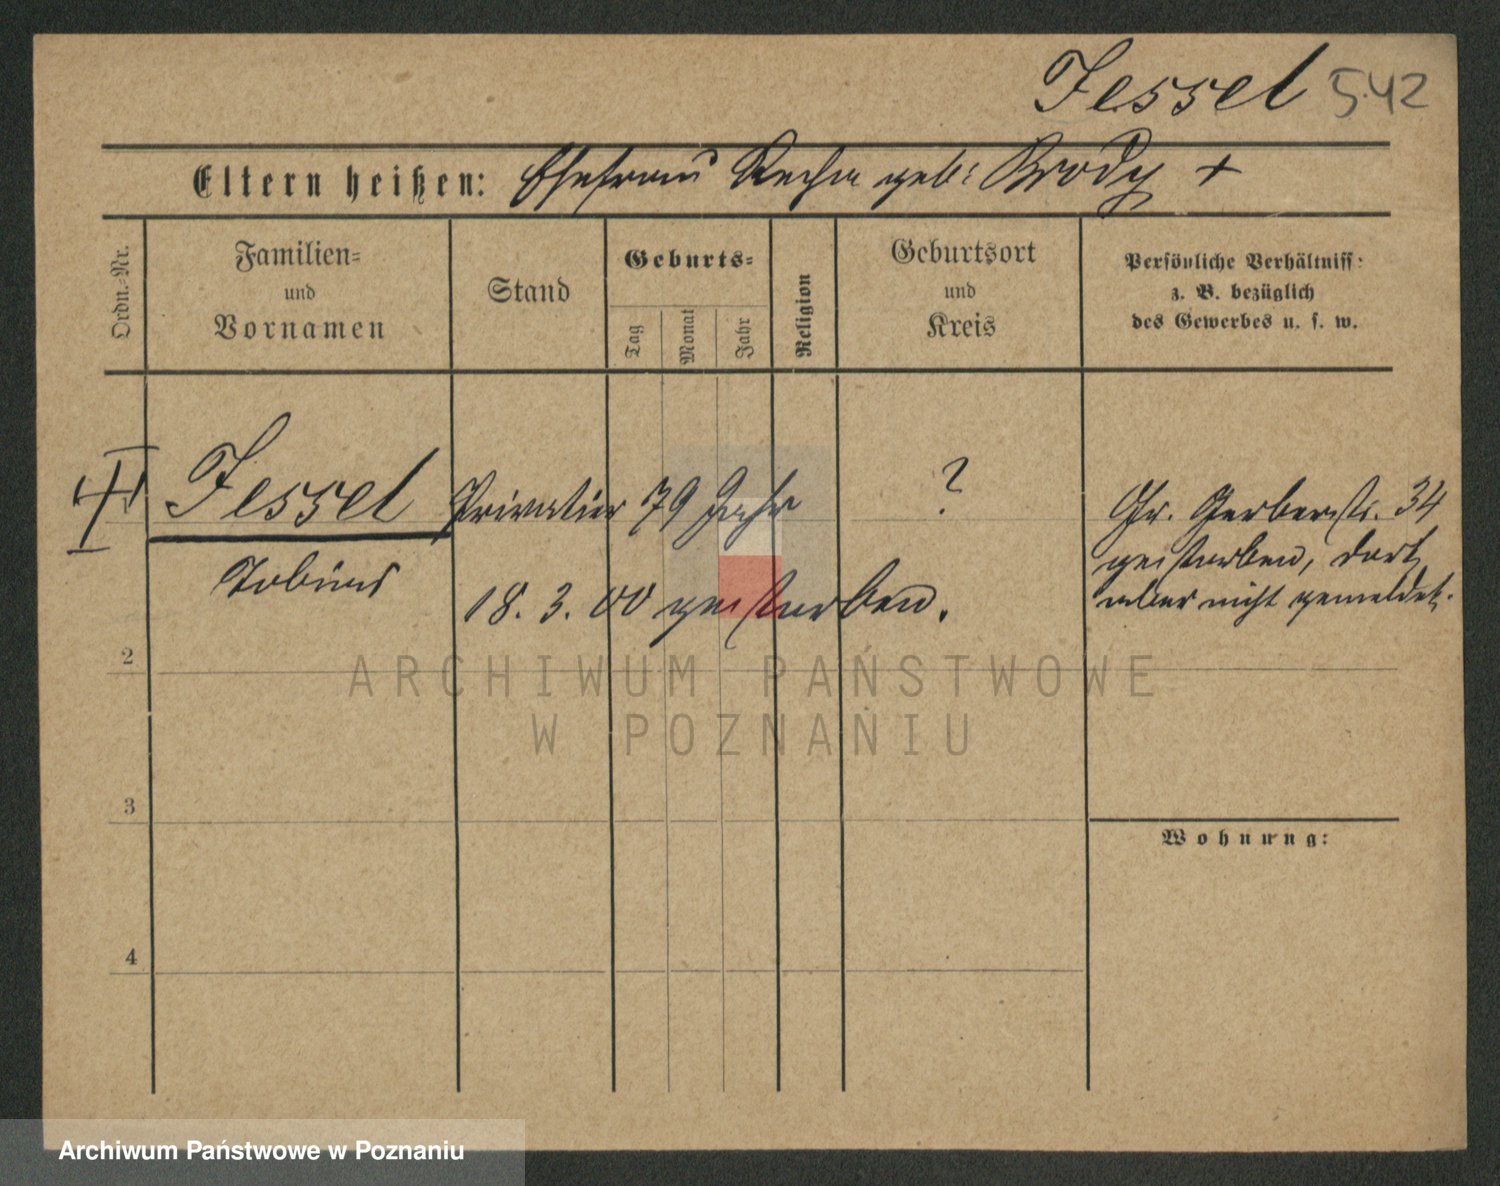 Jessel 542
Eltern heißen: Ehefrau geb: Brody +
Ordn.-Nr.
Familien=
und
Vornamen
Stand
Geburts=
Tag
Monat
Jahr
Religion
Geburtsort
und
Kreis
Persönliche Verhältniss:
z. B. bezüglich
des Gewerbes u. s. w.
Jessel Privatier 79 Jahr ? Gr. Gerberstr. 34
Tobias 18. 3. 00 gestorben. gestorben, dort
aber nicht gemeldet.
2
3
4
Wohnung:
ARCHIWUM PAŃSTWOWE
W POZNANIU
Archiwum Państwowe w Poznaniu